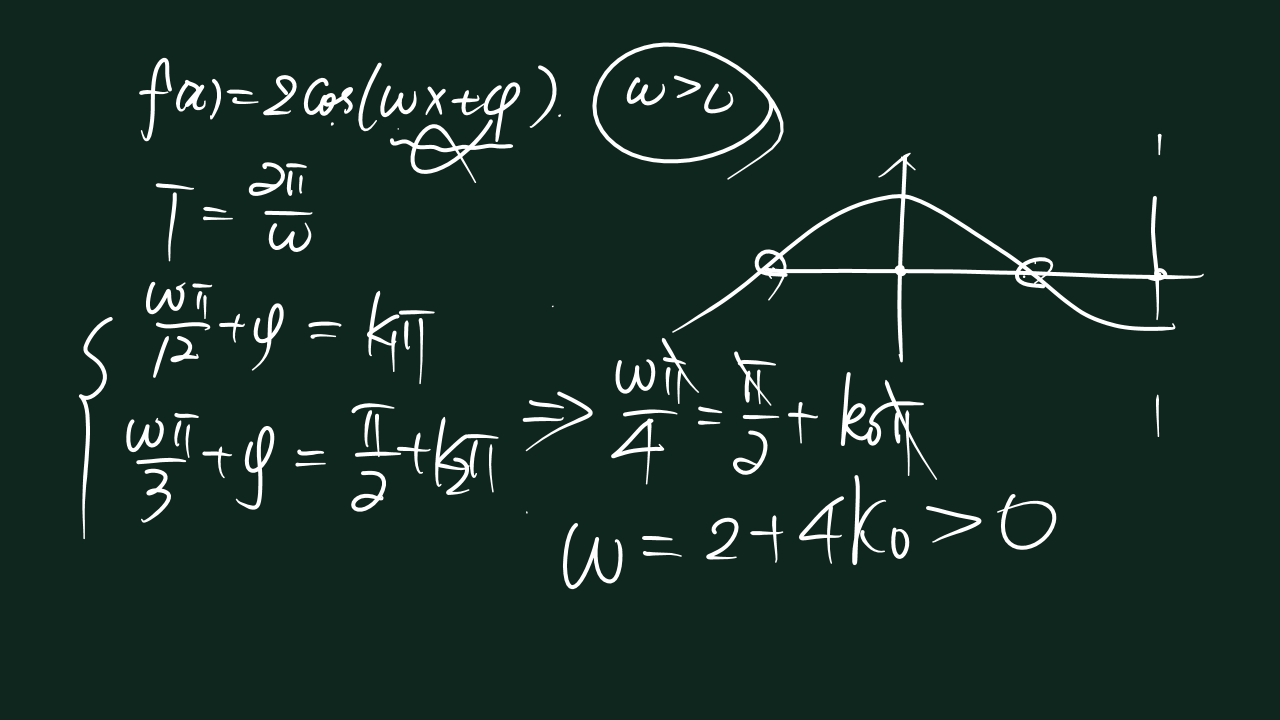 f(x)=2cos(ωx+φ). ω>0
T=2π/ω
ωπ/12+φ=k₁π
ωπ/3+φ=π/2+k₂π ⇒ ωπ/4=π/2+k₀π
ω=2+4k₀>0